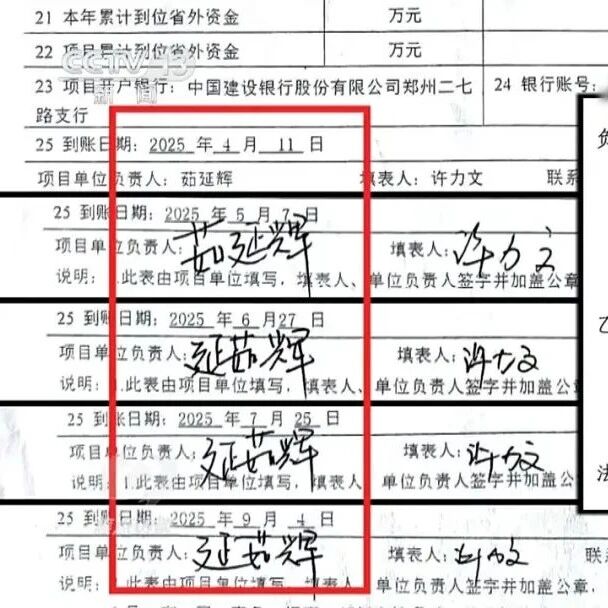 21 本年累计到位省外资金 万元
22 项目累计到位省外资金 万元
CCTV 13
新闻
23 项目开户银行：中国建设银行股份有限公司郑州二七路支行 24 银行账号：
25 到账日期：2025 年 4 月 11 日
项目单位负责人：茹延辉 填表人：许力文 联系
25 到账日期：2025 年 5 月 7 日
项目单位负责人：茹延辉 填表人：许力文
说明：1.此表由项目单位填写，填表人、单位负责人签字并加盖公章
25 到账日期：2025 年 6 月27 日
项目单位负责人：延茹辉 填表人：许力文
说明：1.此表由项目单位填写，填表人、单位负责人签字并加盖公
25 到账日期：2025 年 7 月 25 日
项目单位负责人：延茹辉 填表人：许力文
说明：1.此表由项目单位填写，填表人、单位负责人签字并加盖公章
25 到账日期：2025 年 9 月 4 日
项目单位负责人：延茹辉 填表人：许文 联系
说明：1.此表由项目单位填写，填表人、单位负责人签字并加盖公章
负
乙
法